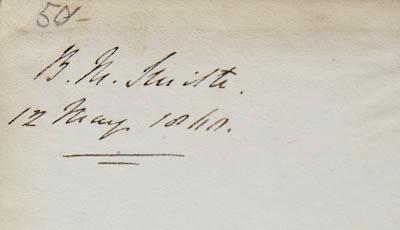 50/-
B. M. Smith.
12 May 1868.